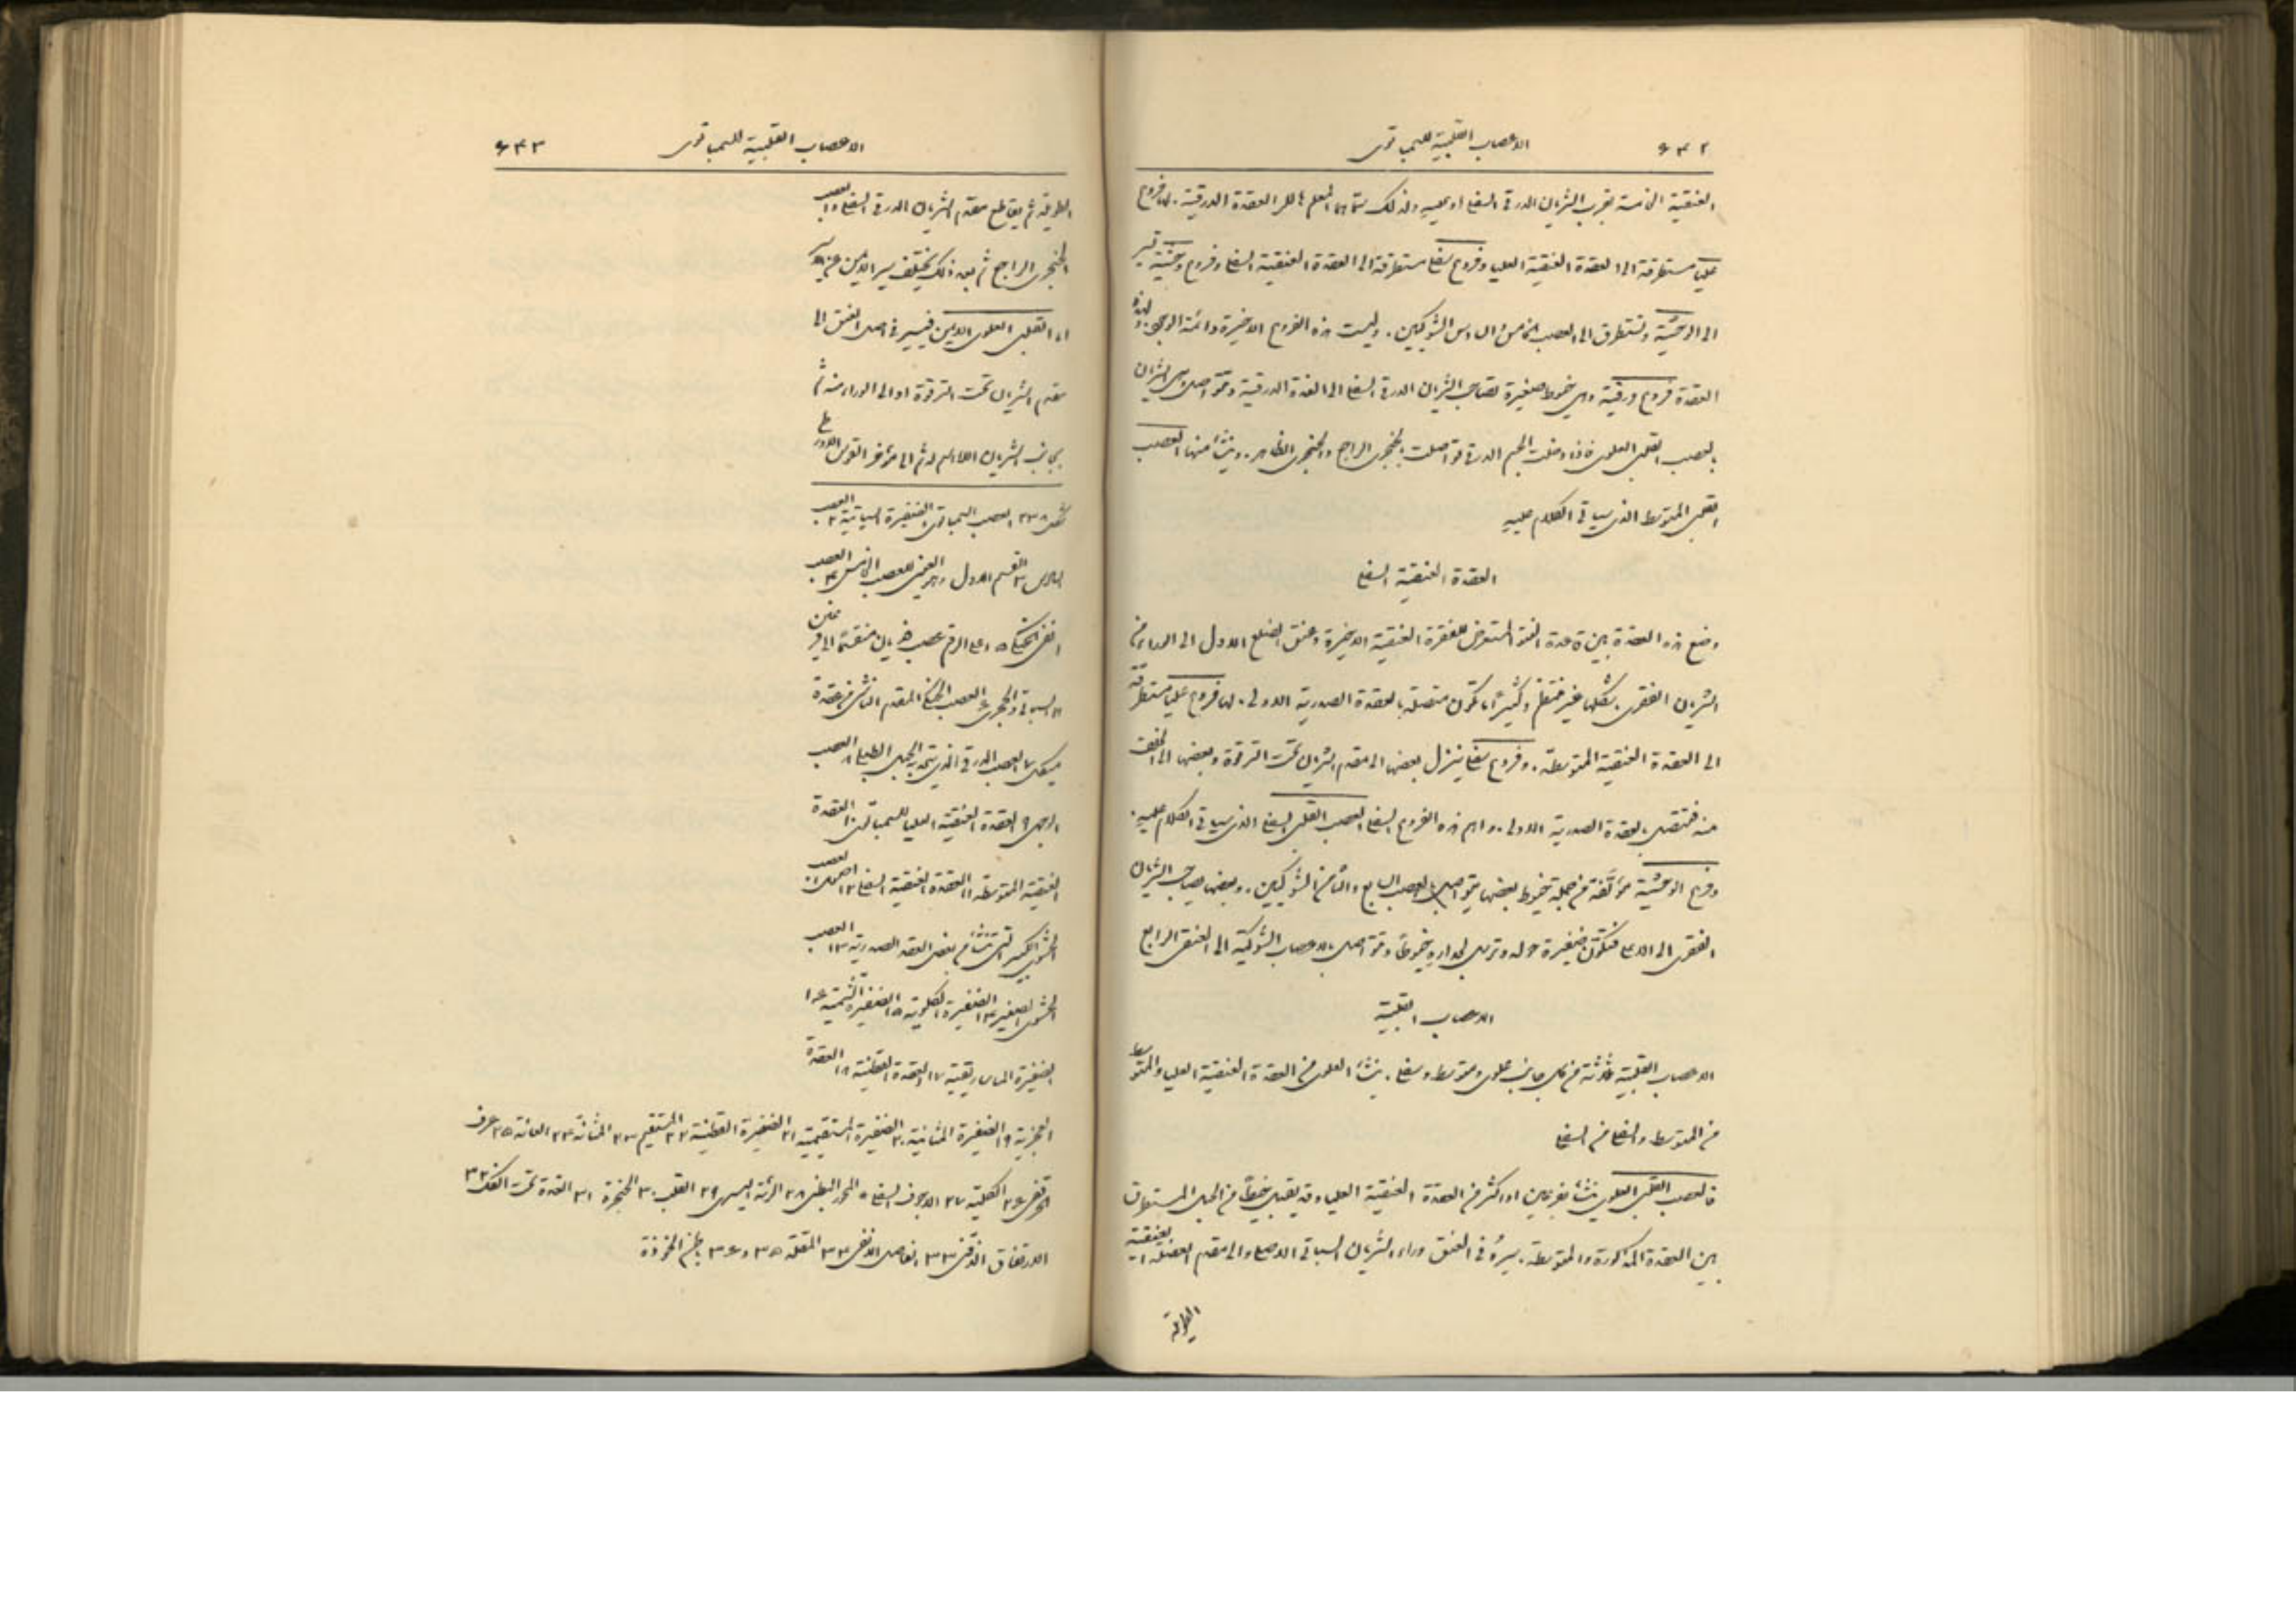 ٦٤٢ الاعصاب القلبية للسمباتوى
العنقية الخامسة بقرب الشريان الدرقى السفلى او عليه ولذلك سماها المعلم هالر العقدة الدرقية. لها فروع
عليا مستطرقة الى العقدة العنقية العليا وفروع سفلى مستطرقة الى العقدة العنقية السفلى وفروع وحشية تسير
الى الوحشية وتستطرق الى العصب الخامس والسادس الشوكيين. وليست هذه الفروع الاخيرة دائمة الوجود. ولهذه
العقدة فروع درقية وهى خيوط صغيرة تصاحب الشريان الدرقى السفلى الى الغدة الدرقية وتتواصل على الشريان
بالعصب القلبى العلوى فاذا دخلت الجسم الدرقى تواصلت بالحنجرى الراجع والحنجرى الظاهر. وينشأ منها العصب
القلبى المتوسط الذى سيأتى الكلام عليه
العقدة العنقية السفلى
وضع هذه العقدة بين قاعدة النتو المستعرض للفقرة العنقية الاخيرة وعنق الضلع الاول الى الوراء من
الشريان الفقرى. شكلها غير منتظم وكثيرًا ما تكون متصلة بالعقدة الصدرية الاولى. لها فروع عليا مستطرقة
الى العقدة العنقية المتوسطة. وفروع سفلى ينزل بعضها الى مقدم الشريان تحت الترقوة وبعضها الى الخلف
منه فتتصل بالعقدة الصدرية الاولى. واهم هذه الفروع السفلى العصب القلبى السفلى الذى سيأتى الكلام عليه.
وفروع الوحشية مؤلفة من جملة خيوط بعضها يتواصل بالعصب السابع والثامن الشوكيين. وبعضها يصاحب الشريان
الفقرى الى الاعلى فتكون ضفيرة حوله وترسل لجداره خيوطًا وتتواصل بالاعصاب الشوكية الى العنقى الرابع
الاعصاب القلبية
الاعصاب القلبية ثلاثة من كل جانب علوى ومتوسط وسفلى. ينشأ العلوى من العقدة العنقية العليا والمتوسط
من المتوسط والسفلى من السفلى
فالعصب القلبى العلوى ينشأ بفرعين او اكثر من العقدة العنقية العليا وقد يقبل خيطًا من الحبل المستطرق
بين العقدة المذكورة والمتوسطة. سيره فى العنق وراء الشريان السباتى الاصلى والى مقدم العضلة العنقية
الطويلة
الاعصاب القلبية للسمباتوى ٦٤٣
الطويلة ثم يقاطع مقدم الشريان الدرقى السفلى والعصب
الحنجرى الراجع ثم بعد ذلك يختلف سير الايمن عن الايسر
اما القلبى العلوى الايمن فيسير فى اصل العنق الى
مقدم الشريان تحت الترقوة او الى الوراء منه ثم
بجانب الشريان اللااسم له ثم الى مؤخر القوس الاورطى
شكل ٢٣٨ العصب السمباتوى الضفيرة السباتية ٢ العصب
السادس ٣ القسم الاول وهو العينى للعصب الخامس ٤ العصب
السباتى والحجرى ٦ العصب الحنكى المقدم الناشئ من عقدة
الوجهى ٩ العقدة العنقية العليا للسمباتوى ١٠ العقدة
العنقية المتوسطة ١١ العقدة العنقية السفلى ١٢ اصول العصب
الحشوى الكبير التى تنشأ من بعض العقد الصدرية ١٣ العصب
الحشوى الصغير ١٤ الضفيرة الكلوية ١٥ الضفيرة الشمسية ١٦
الضفيرة الماساريقية ١٧ العقدة القطنية ١٨ العقدة
العجزية ١٩ الضفيرة المثانية ٢٠ الضفيرة المستقيمية ٢١ الضفيرة القطنية ٢٢ المستقيم ٢٣ المثانة ٢٤ العانة ٢٥ عرف
الحرقفى ٢٦ الكلية ٢٧ الاجوف السفلى المجرد البطنى ٢٨ الرئة اليسرى ٢٩ القلب ٣٠ الحنجرة ٣١ الغدة تحت الفك ٣٢
الارتفاق الذقنى ٣٣ الفاصل الانفى ٣٤ المقلة ٣٥ و ٣٦ باطن الجمجمة